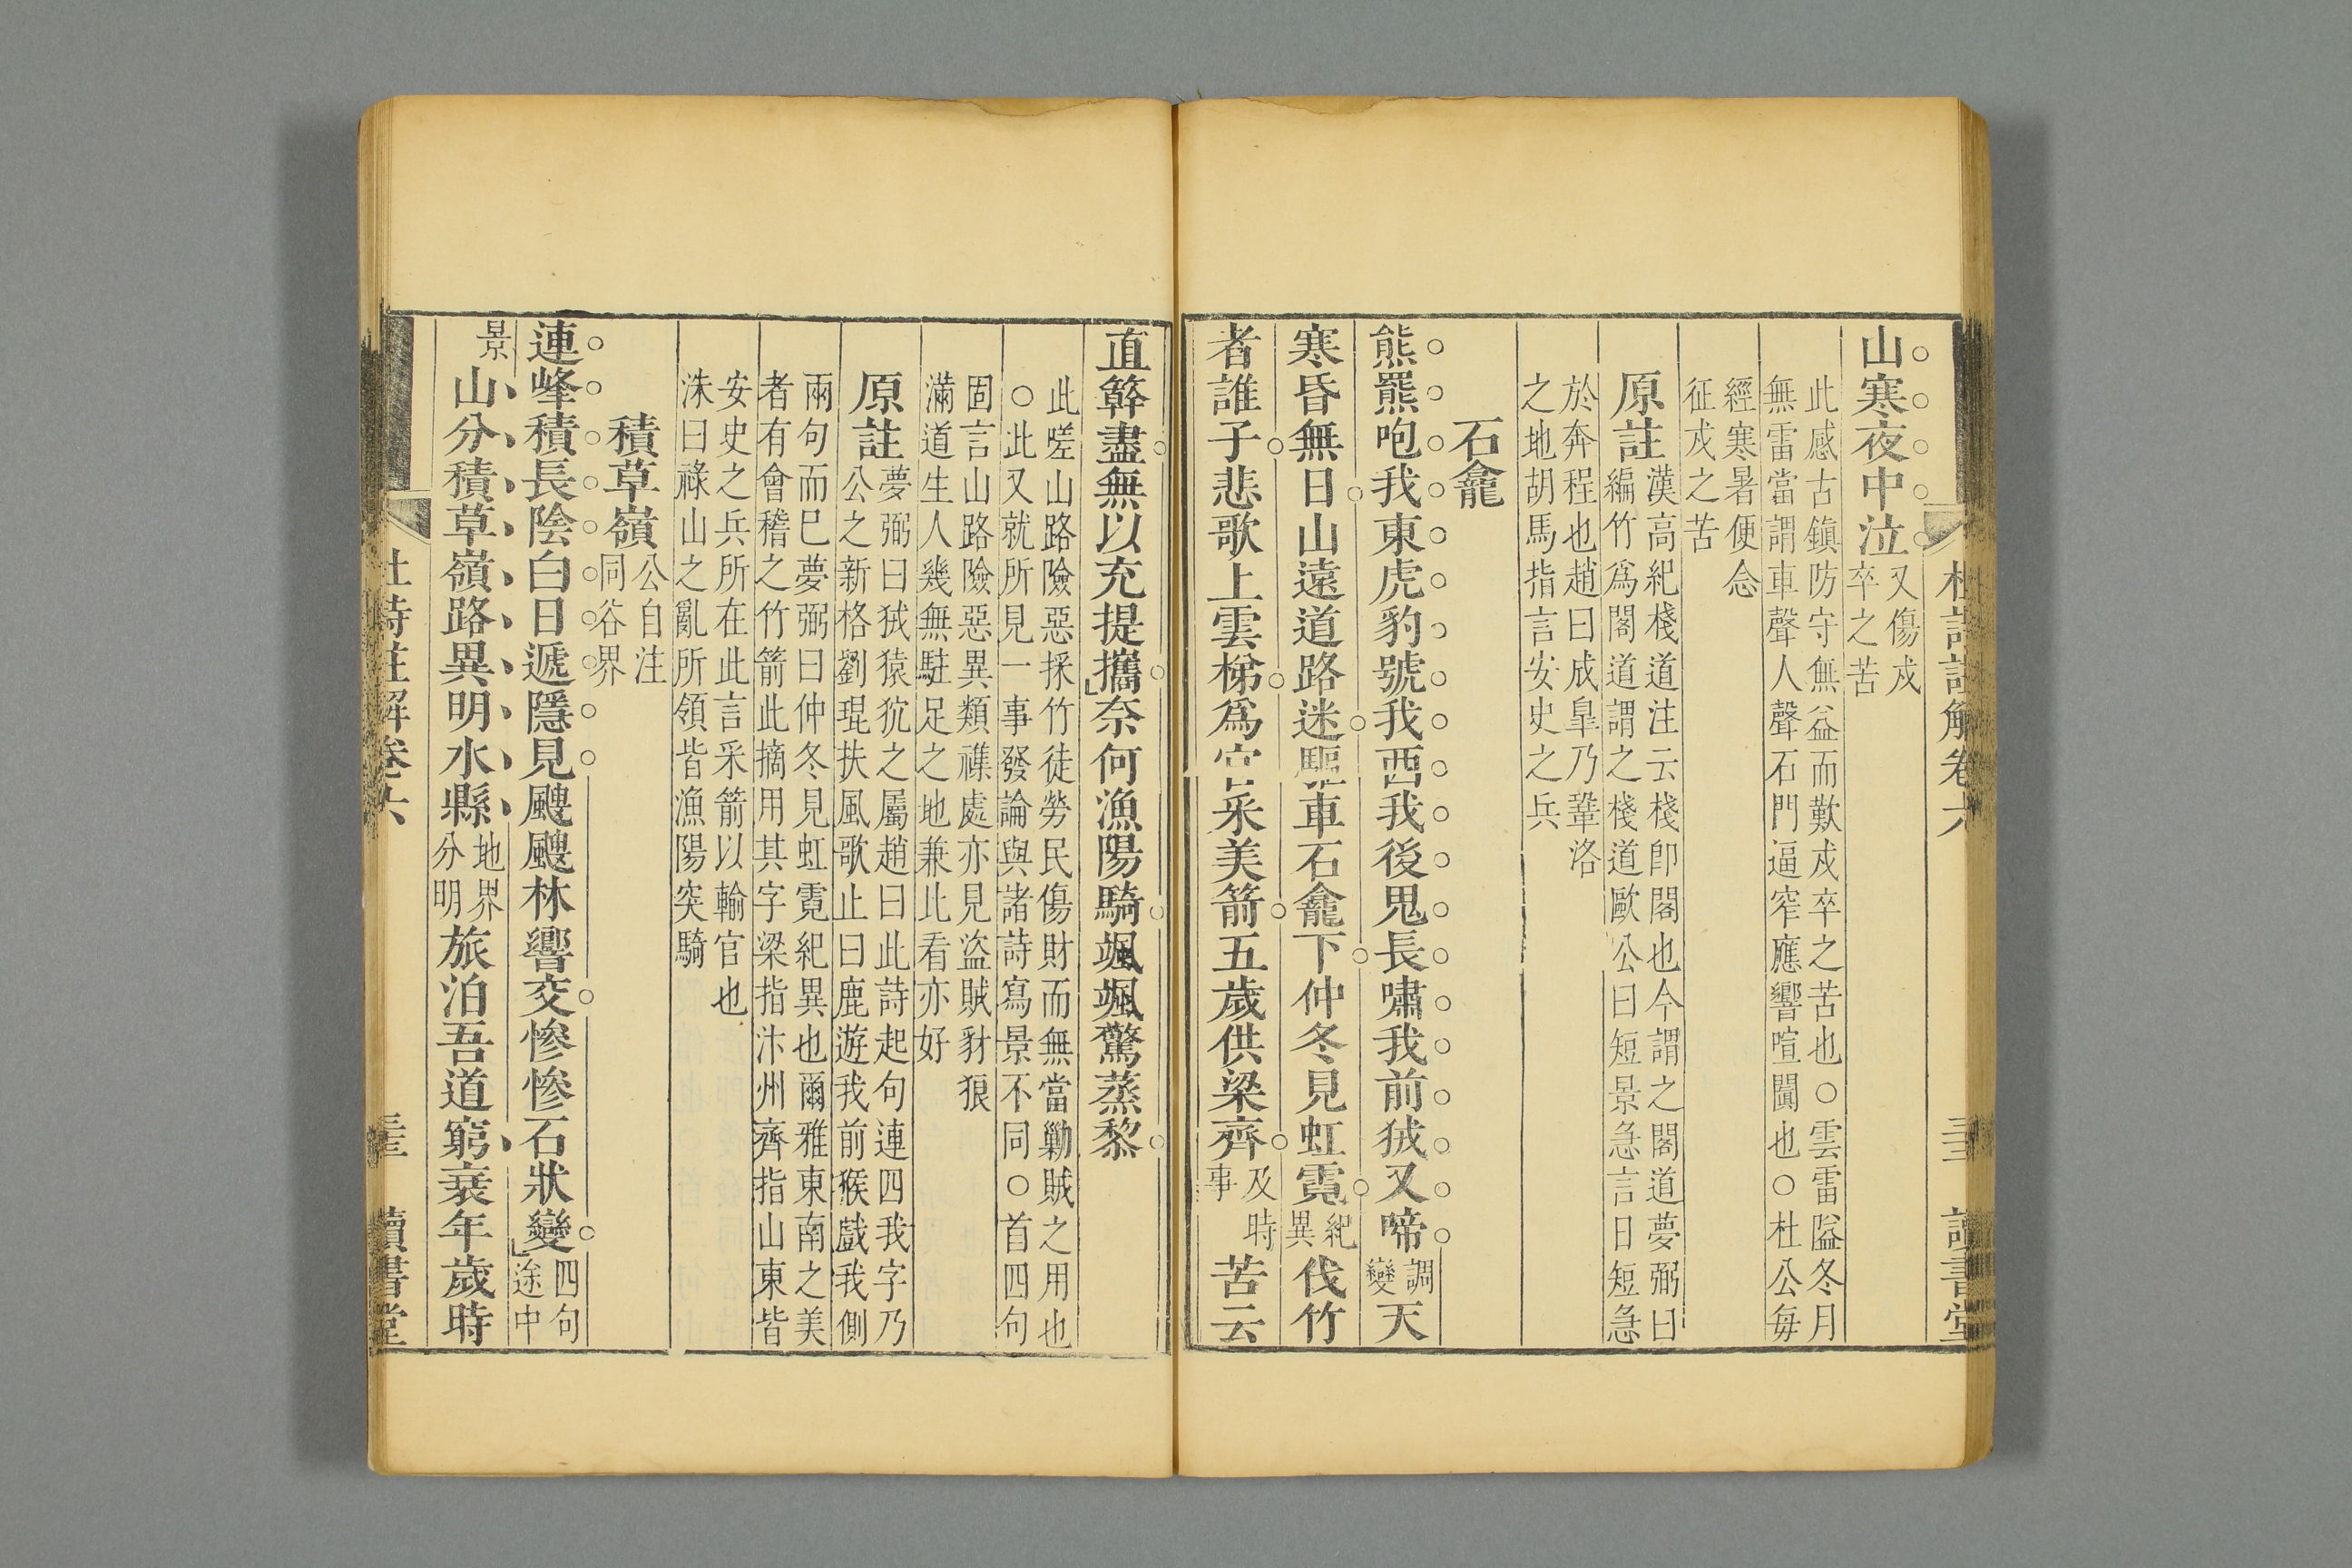 杜詩註解卷六
讀書堂
山寒夜中泣又傷戍卒之苦
此感古鎮防守無益而歎戍卒之苦也○雲雷隘冬月
無雷當謂車聲人聲石門逼窄應響喧闐也○杜公每
經寒暑便念
征戍之苦
原註漢高紀棧道注云棧卽閣也今謂之閣道夢弼曰
編竹爲閣道謂之棧道歐公曰短景急言日短急
於奔程也趙曰成皐乃鞏洛
之地胡馬指言安史之兵
石龕
熊羆咆我東虎豹號我西我後鬼長嘯我前狨又啼調變天
寒昏無日山遠道路迷驅車石龕下仲冬見虹霓紀異伐竹
者誰子悲歌上雲梯爲官采美箭五歲供梁齊及時事苦云
直簳盡無以充提攜奈何漁陽騎颯颯驚蒸黎
此嗟山路險惡採竹徒勞民傷財而無當勦賊之用也
○此又就所見一事發論與諸詩寫景不同○首四句
固言山路險惡異類襍處亦見盜賊豺狼
滿道生人幾無駐足之地兼此看亦好
原註夢弼曰狨猿狖之屬趙曰此詩起句連四我字乃
公之新格劉琨扶風歌止曰鹿遊我前猴戲我側
兩句而巳夢弼曰仲冬見虹霓紀異也爾雅東南之美
者有會稽之竹箭此摘用其字梁指汴州齊指山東皆
安史之兵所在此言采箭以輸官也
洙曰祿山之亂所領皆漁陽突騎
積草嶺公自注同谷界
連峰積長陰白日遞隱見颼颼林響交慘慘石狀變四句途中
景山分積草嶺路異明水縣地界分明旅泊吾道窮衰年歲時
杜詩註解卷六
讀書堂